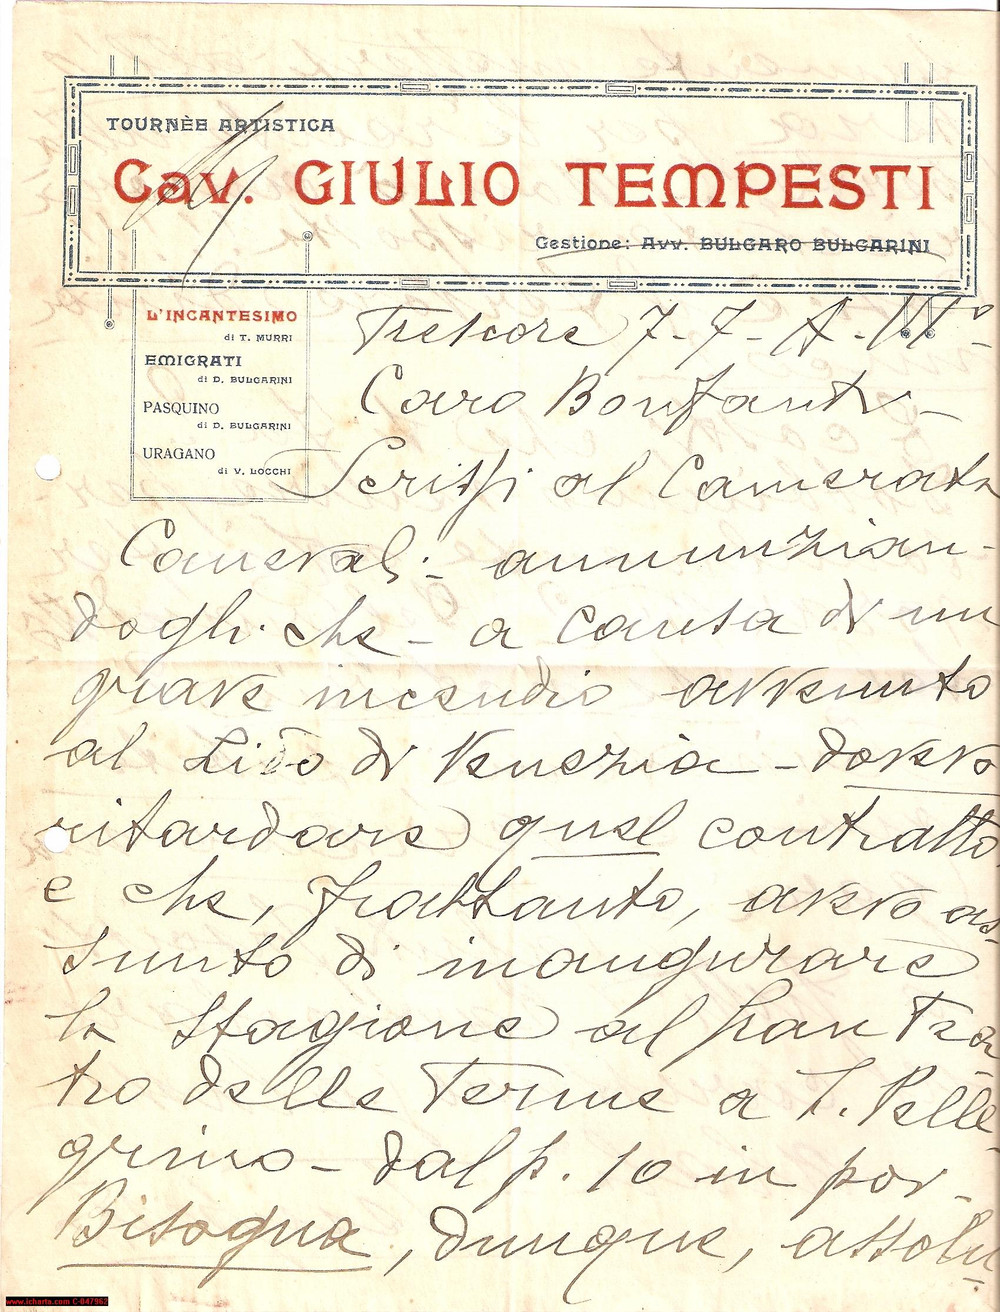 TOURNÈE ARTISTICA
Cav. GIULIO TEMPESTI
Gestione: Avv. BULGARO BULGARINI
L'INCANTESIMO
di T. MURRI
EMIGRATI
di D. BULGARINI
PASQUINO
di D. BULGARINI
URAGANO
di V. LOCCHI
Trescore 7-7-A.VIIº
Caro Bonfanti -
Scrissi al Camerata
Carnevali - annunzian-
dogli che - a causa di un
grave incendio avvenuto
al Lido di Venezia - dovevo
ritardare quel contratto,
e che, frattanto, avevo as-
sunto di inaugurare
la stagione al gran Tea-
tro delle Terme a S. Pelle-
grino - dal p. 10 in poi -
Bisogna, dunque, assolu-
www.icharta.com C-047962